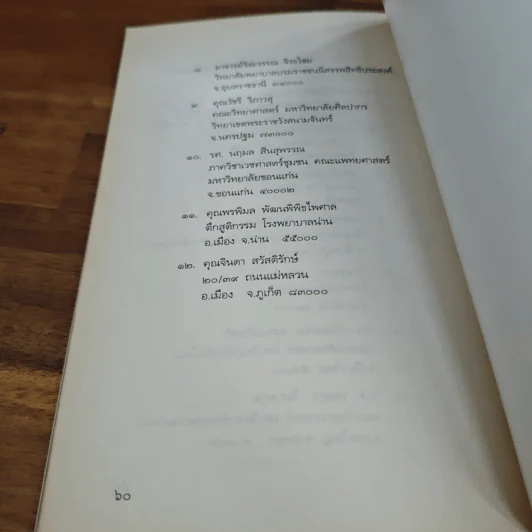 ๘. อาจารย์จิตวรรณ จิระไชย
วิทยาลัยพยาบาลบรมราชชนนีสรรพสิทธิประสงค์
จ.อุบลราชธานี ๓๔๐๐๐
๙. คุณวัชรี วิภาวสุ
คณะวิทยาศาสตร์ มหาวิทยาลัยศิลปากร
วิทยาเขตพระราชวังสนามจันทร์
จ.นครปฐม ๗๓๐๐๐
๑๐. รศ. นฤมล สินสุพรรณ
ภาควิชาเวชศาสตร์ชุมชน คณะแพทยศาสตร์
มหาวิทยาลัยขอนแก่น
จ.ขอนแก่น ๔๐๐๐๒
๑๑. คุณพรพิมล พัฒนพิพิธไพศาล
ตึกสูติกรรม โรงพยาบาลน่าน
อ.เมือง จ.น่าน ๕๕๐๐๐
๑๒. คุณจินตา สวัสดิรักษ์
๒๐/๓๙ ถนนแม่หลวน
อ.เมือง จ.ภูเก็ต ๘๓๐๐๐
๖๐